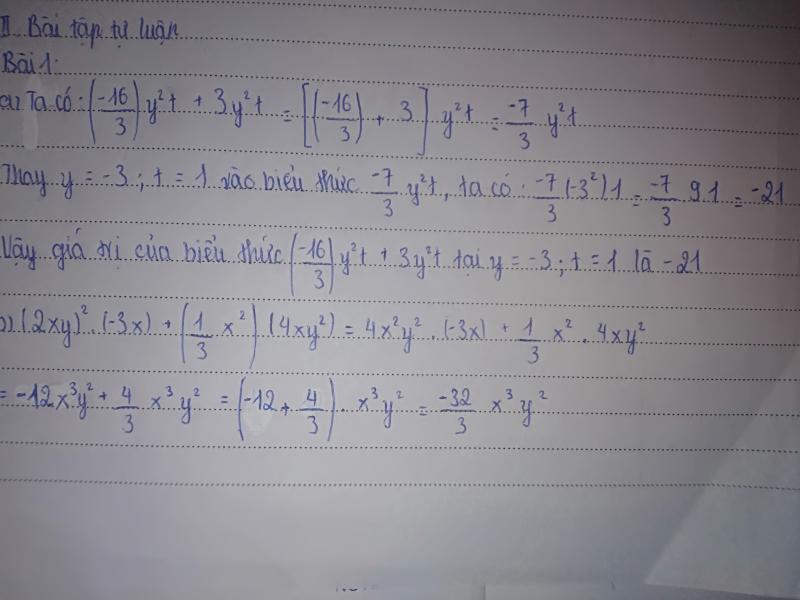 II. Bài tập tự luận
Bài 1:
a) Ta có: (-16/3) y²t + 3y²t = [(-16/3) + 3] y²t = -7/3 y²t
Thay y = -3; t = 1 vào biểu thức -7/3 y²t, ta có: -7/3 (-3²) 1 = -7/3 . 9.1 = -21
Vậy giá trị của biểu thức (-16/3) y²t + 3y²t tại y = -3; t = 1 là -21
b) (2xy)² . (-3x) + (1/3 x²) (4xy²) = 4x²y² . (-3x) + 1/3 x² . 4xy²
= -12x³y² + 4/3 x³y² = (-12 + 4/3) . x³y² = -32/3 x³y²